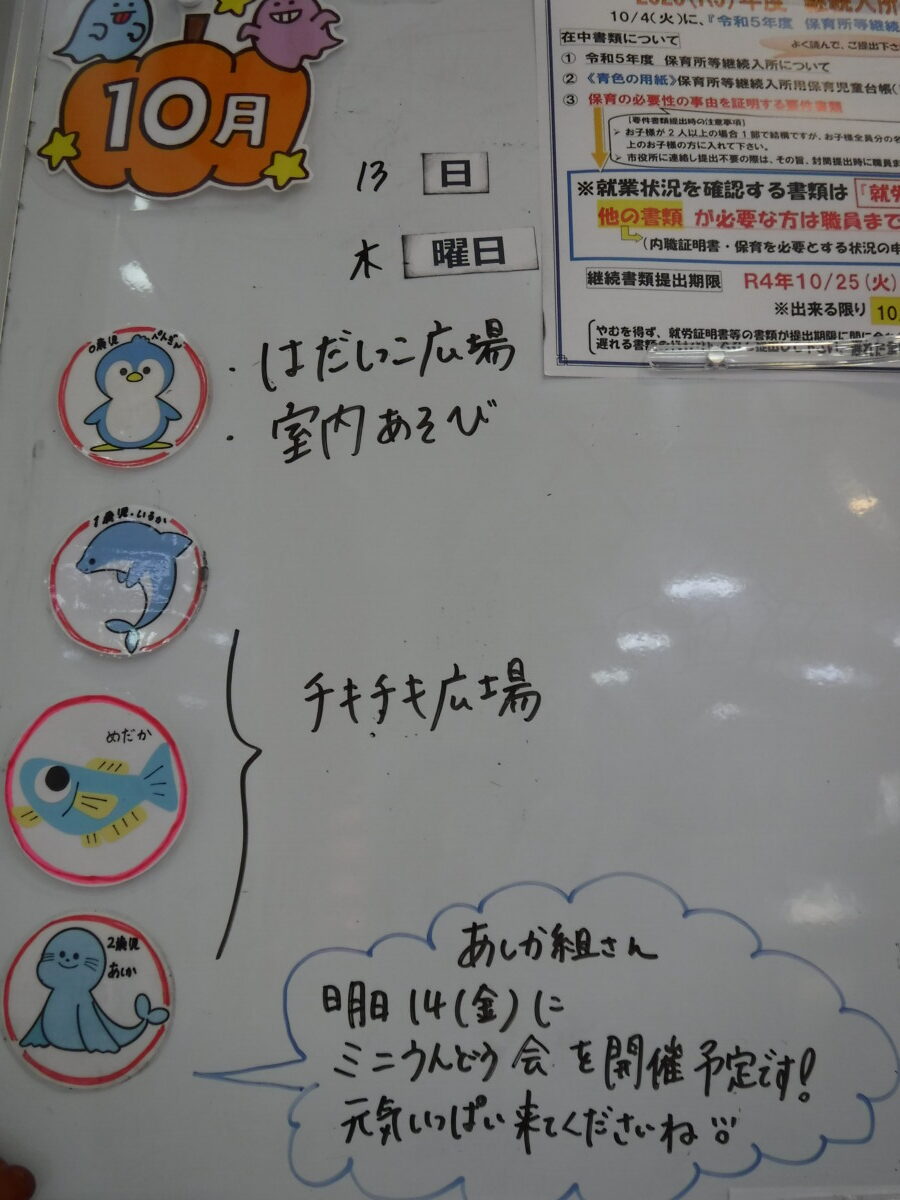 10月
13 日
木 曜日
0歳児 ぺんぎん
・はだしっこ広場
・室内あそび
1歳児・いるか
めだか
2歳児
あしか
チキチキ広場
あしか組さん
明日14(金)に
ミニうんどう会を開催予定です!
元気いっぱい来てくださいね
10/4(火)に、『令和5年度 保育所等継続
在中書類について
よく読んで、ご提出下さ
① 令和5年度 保育所等継続入所について
② 《青色の用紙》保育所等継続入所用保育児童台帳
③ 保育の必要性の事由を証明する要件書類
【要件書類提出時の注意事項】
> お子様が2人以上の場合1部で結構ですが、お子様全員分の名
上のお子様の方に入れて下さい。
> 市役所に連絡し提出不要の際は、その旨、封筒提出時に職員ま
※就業状況を確認する書類は『就労
他の書類 が必要な方は職員まで
(内職証明書・保育を必要とする状況の申
継続書類提出期限 R4年10/25(火)
※出来る限り 10
やむを得ず、就労証明書等の書類が提出期限に間に合